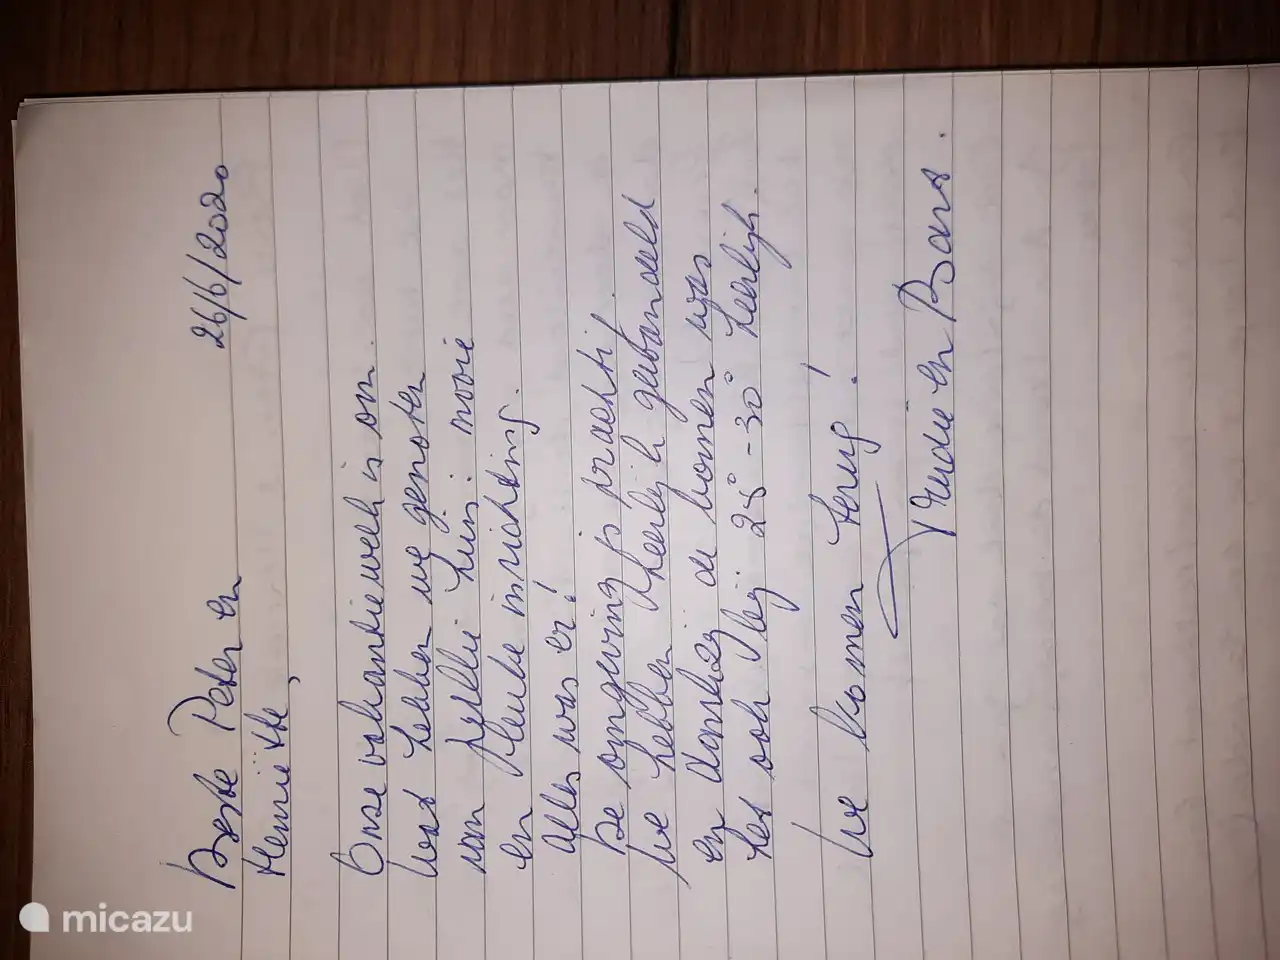 Beste Peter en 26/6/2020
Henriëtte,
Onze vakantieweek is om.
Wat hebben we genoten
van jullie huis: mooie
en leuke inrichting.
Alles was er!
De omgeving is prachti
We hebben heerlijk gewandeld
en dankzij de bomen was
het ook bij 25° - 30° heerlijk.
We komen terug!
en Bart.
micazu